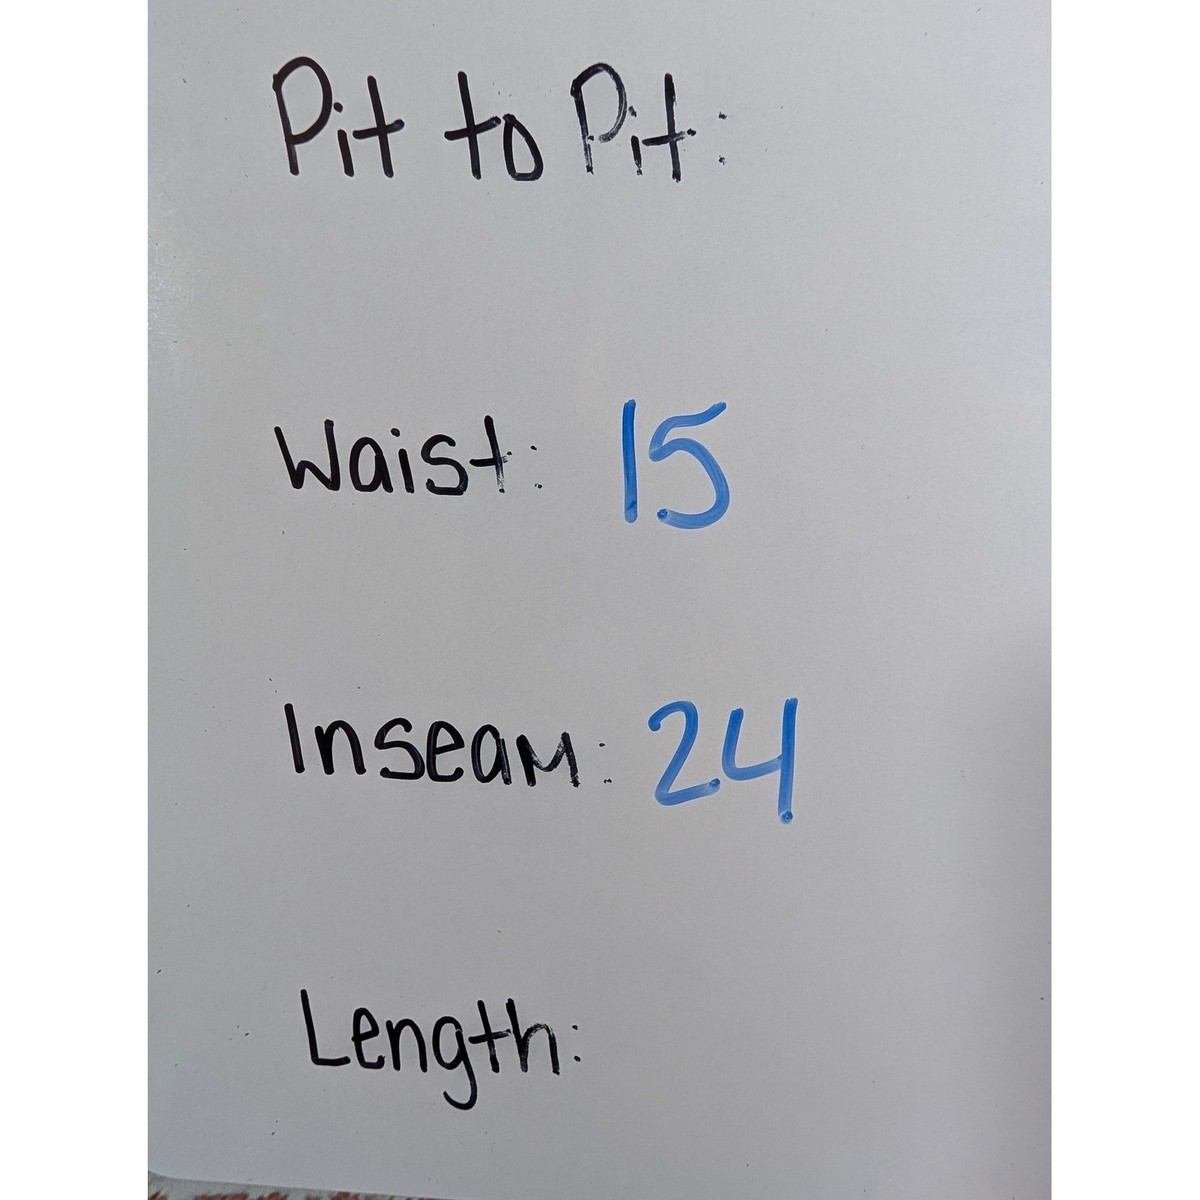 Pit to Pit:
Waist: 15
Inseam: 24
Length: